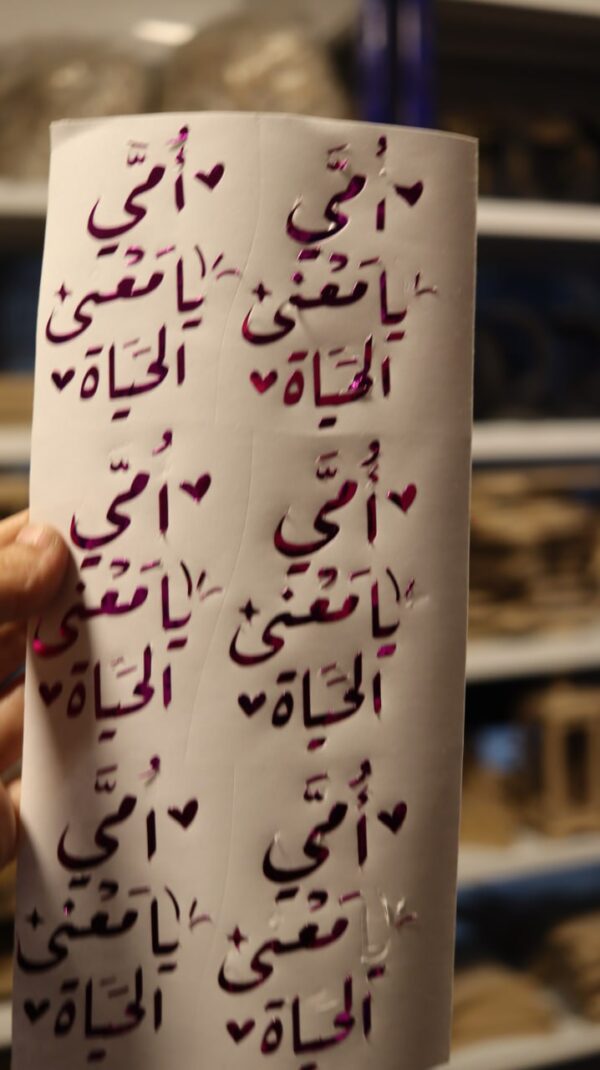 أُمَّي
يا مَعْنى
الحَيَاة
أُمَّي
يا مَعْنى
الحَيَاة
أُمَّي
يا مَعْنى
الحَيَاة
أُمَّي
يا مَعْنى
الحَيَاة
أُمَّي
يا مَعْنى
الحَيَاة
أُمَّي
يا مَعْنى
الحَيَاة